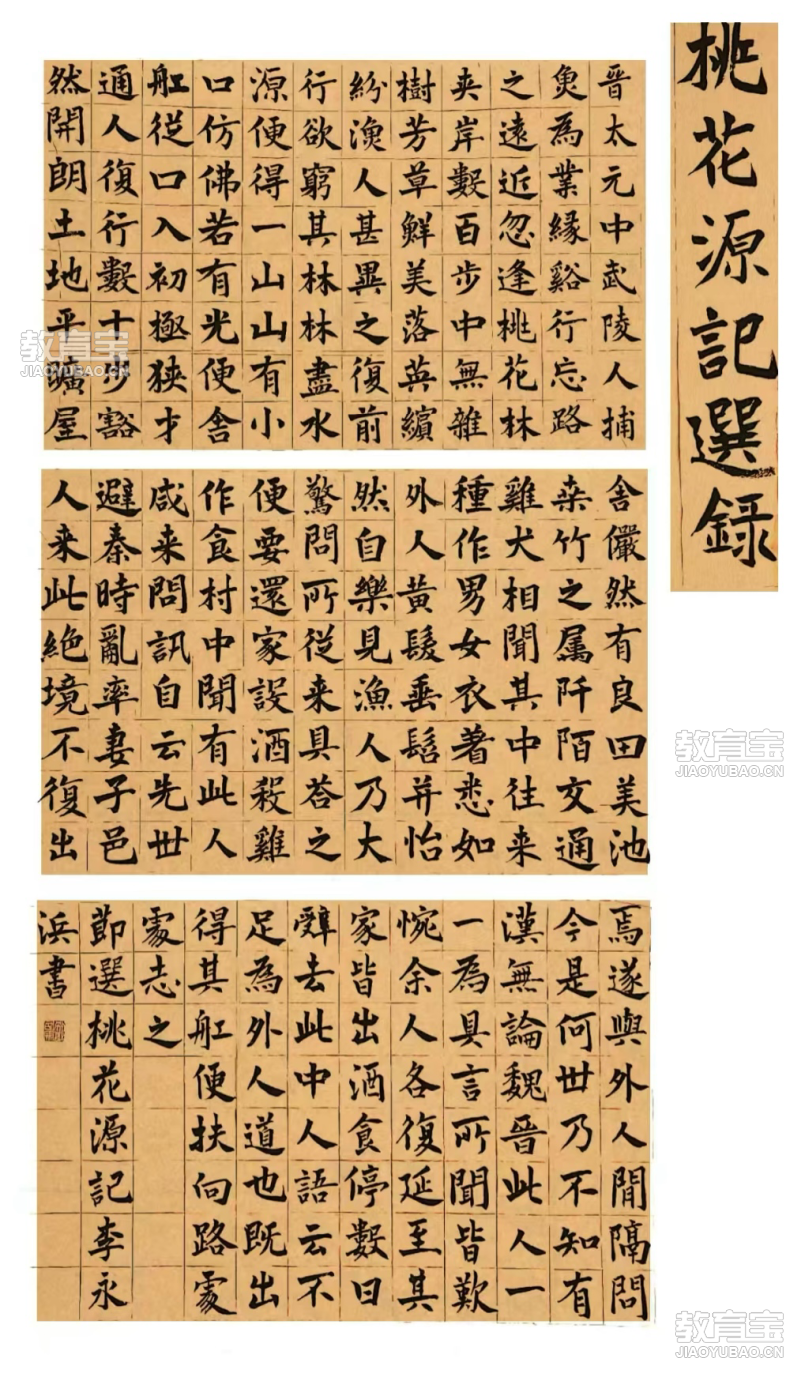 桃花源記選録
晋太元中武陵人捕
魚為業緣谿行忘路
之遠近忽逢桃花林
夾岸數百步中無雜
樹芳草鮮美落英繽
紛漁人甚異之復前
行欲窮其林林盡水
源便得一山山有小
口仿佛若有光便舍
舡從口入初極狹才
通人復行數十步豁
然開朗土地平曠屋
舍儼然有良田美池
桒竹之属阡陌交通
雞犬相聞其中往来
種作男女衣著悉如
外人黃髮垂髫并怡
然自樂見漁人乃大
驚問所從来具荅之
便要還家設酒殺雞
作食村中聞有此人
咸来問訊自云先世
避秦時亂率妻子邑
人来此絕境不復出
焉遂與外人間隔問
今是何世乃不知有
漢無論魏晋此人一
一為具言所聞皆歎
惋余人各復延至其
家皆出酒食停數日
辭去此中人語云不
足為外人道也既出
得其舡便扶向路處
處志之
節選桃花源記李永
浜書
教育宝
JIAOYUBAO.CN
教育宝
JIAOYUBAO.CN
教育宝
JIAOYUBAO.CN